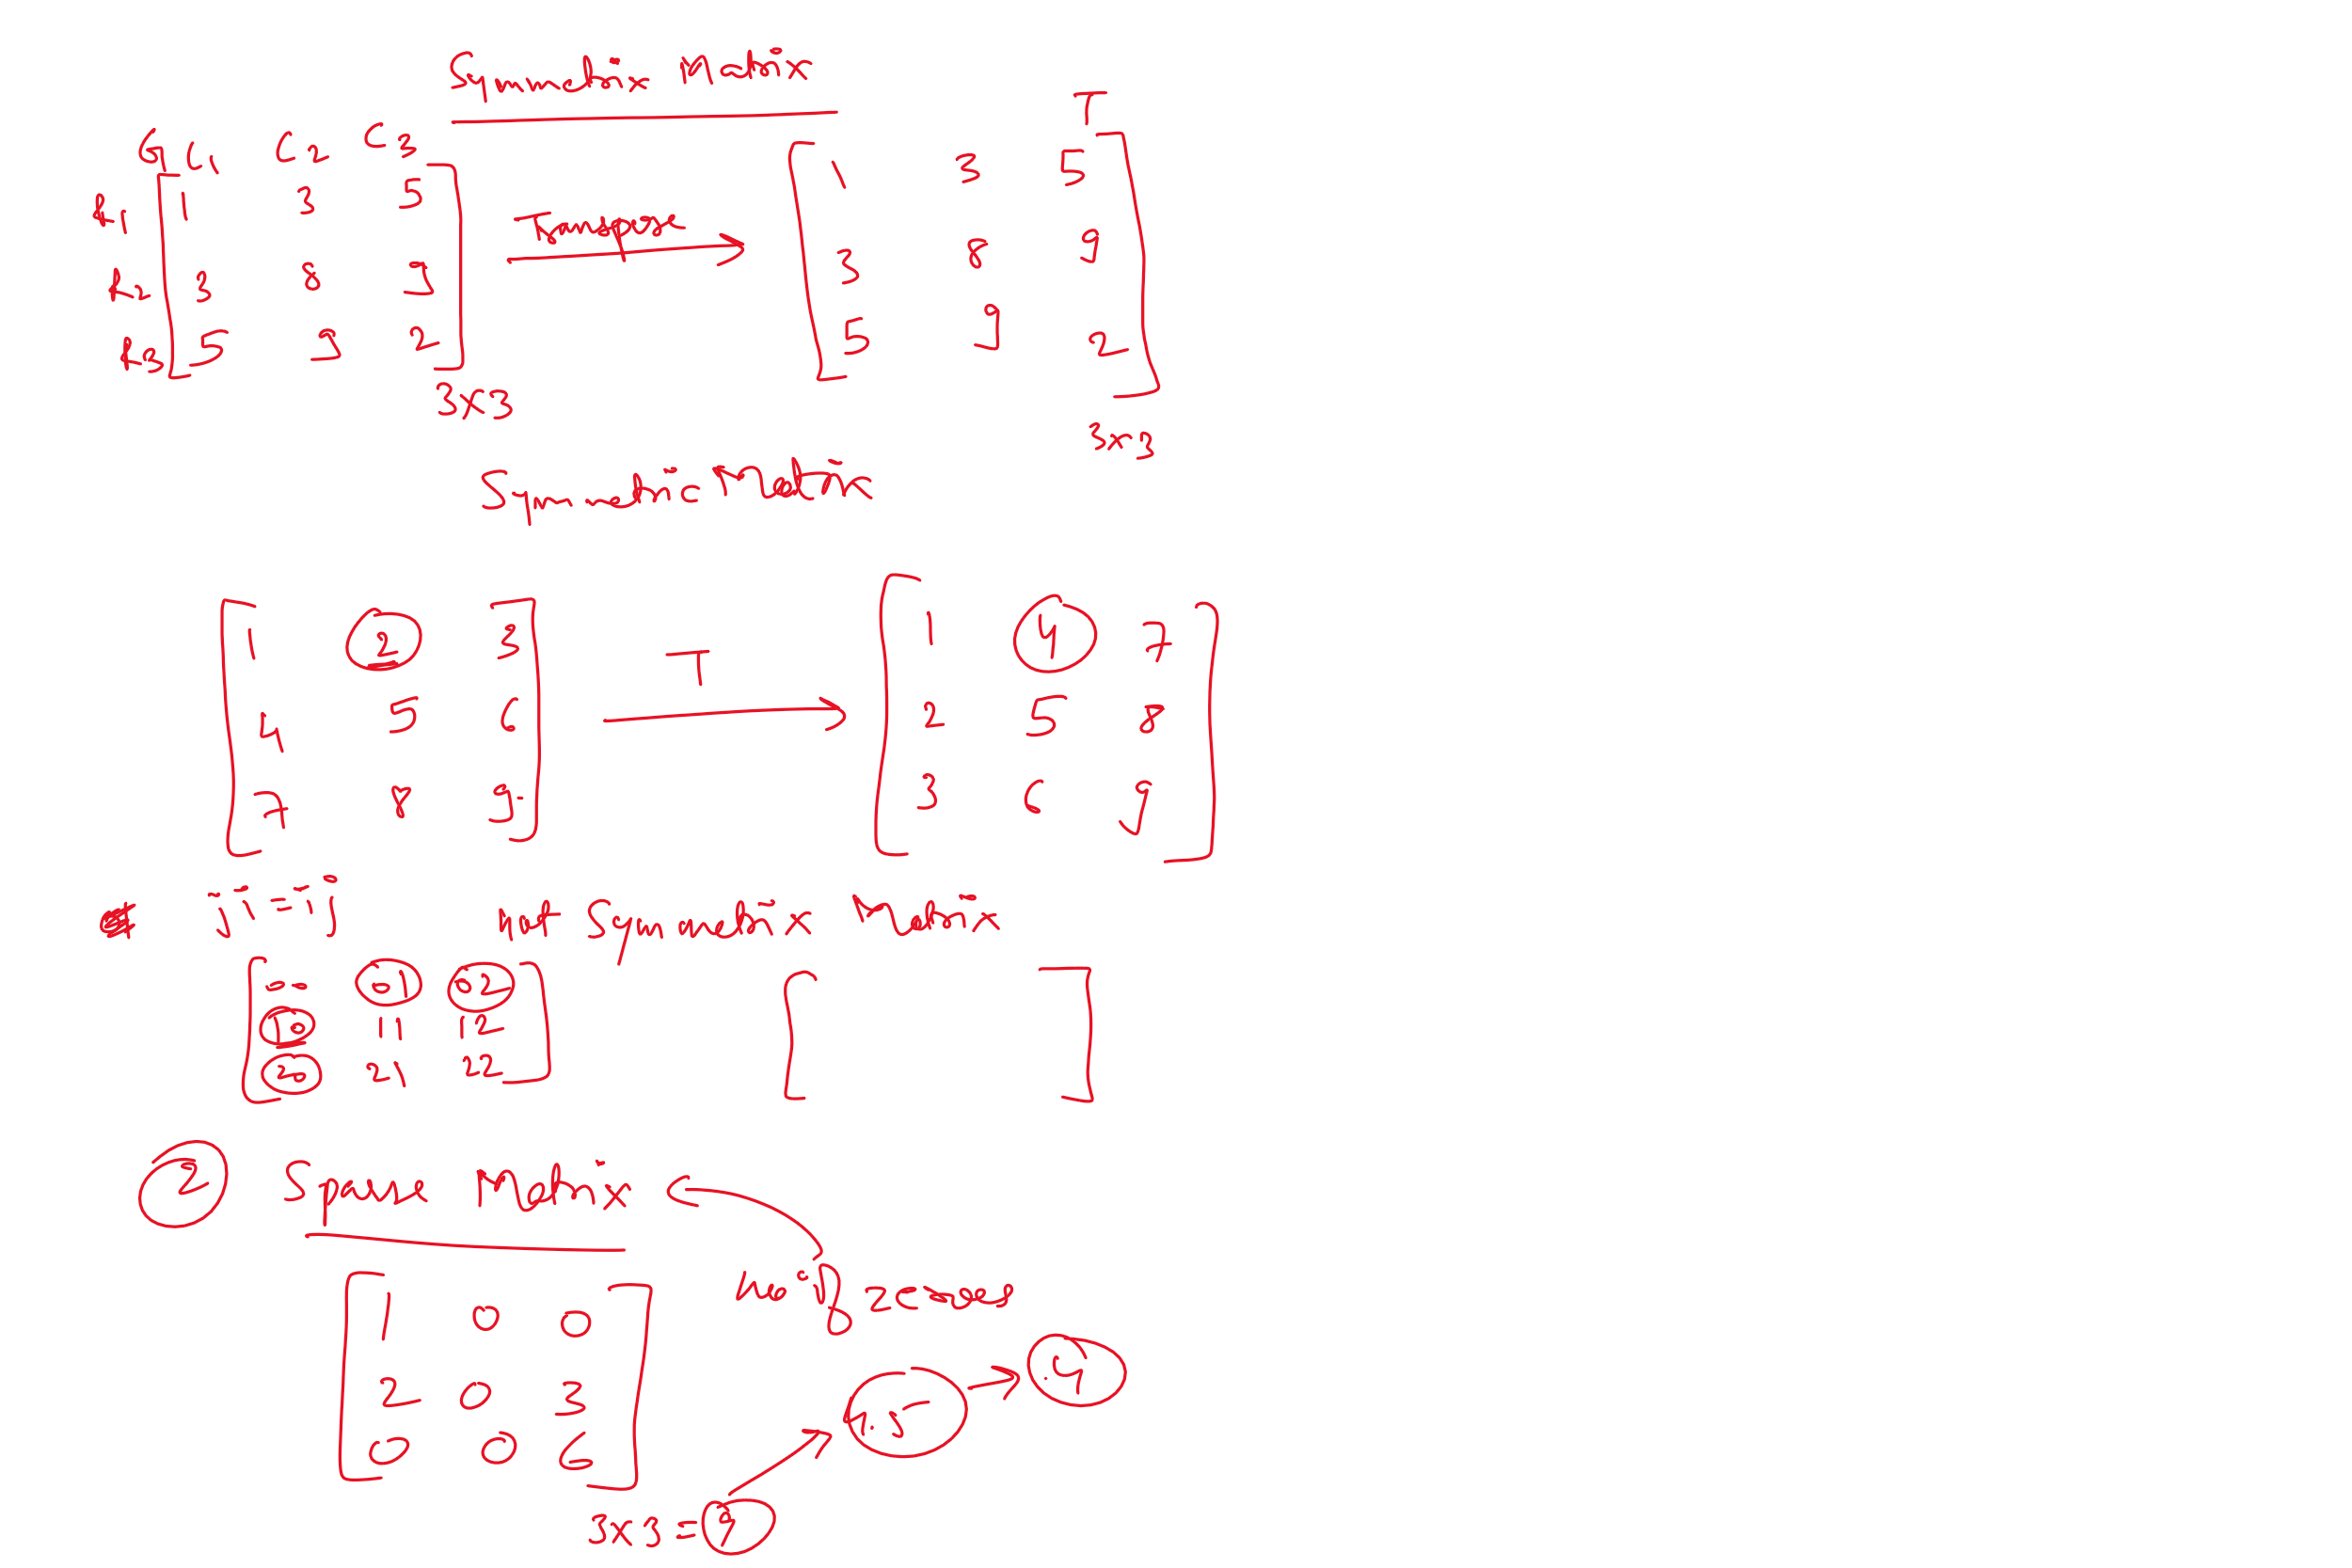 Symmetrix Matrix
C1 C2 C3
R1 1 3 5
R2 3 8 9
R3 5 9 2
3x3
Transpose
T
1 3 5
3 8 9
5 9 2
3x3
Symmetric Matrix
1 2 3
4 5 6
7 8 9
T
1 4 7
2 5 8
3 6 9
ji = ij
not Symmetrix Matrix
01 02
10 11 12
20 21 22
2 Sparse Matrix
No. of zeroes
1 0 0
2 0 3
0 0 6
3x3 = 9
4.5
.4